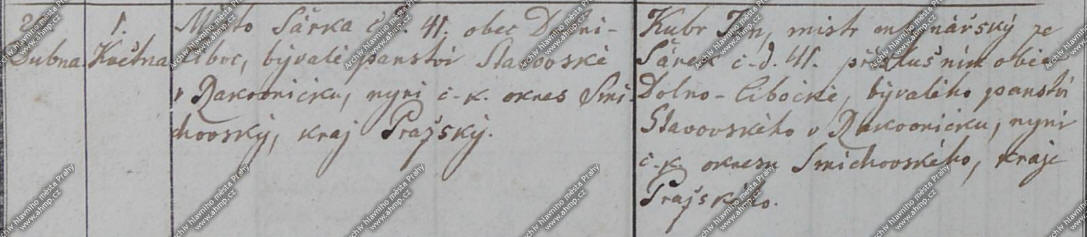 2 1. Místo Šárka č. d. 41. obec Dolni- Kubr Jan, mistr mlynářský ze
Dubna Května Liboc, bývalé panství Stavovské Šárek č. d. 41. příslušním obce
v Rakovnicku, nyni c. k. okres Smi- Dolno-Libocké, bývalého panství
chovský, kraj Pražský. Stavovského v Rakovnicku, nyni
c. k. okresu Smichovského, kraje
Pražského.
Archiv hlavního města Prahy
www.ahmp.cz